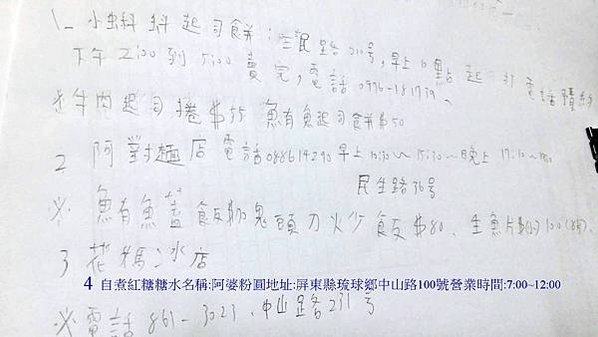 1. 小蚪蚪起司餅:三民路210號,早上6點起
下午2:00到5:00賣完,電話0976-181719、
※牛肉起司捲$55 魚有魚起司食并$50
2 阿對麵店 電話088614290早上10:30~15:30~晚上17:10~
民生路36號
※魚有魚蓋飯 鬼頭刀火少飯$80、生魚片$100
3 花媽冰店
4 自煮紅糖糖水名稱:阿婆粉圓地址:屏東縣琉球鄉中山路100號營業時間:7:00~12:00
※電話861-3023、中山路231號